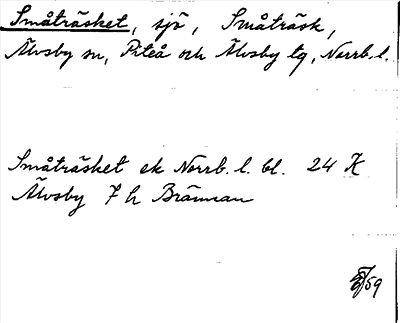 Småträsket, sjö, Småträsk,
Älvsby sn, Piteå och Älvsby tg, Norrb. l.
Småträsket ek Norrb. l. bl. 24 K
Älvsby 7 h Brännan
/59